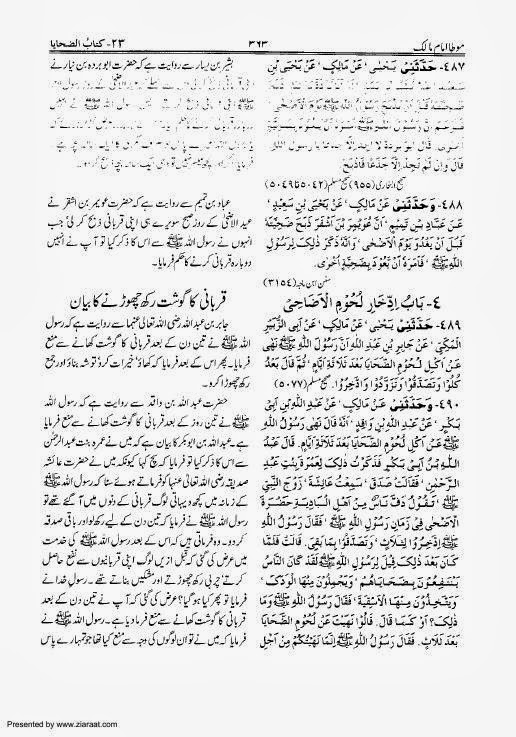 موطا امام مالک ۳۶۳ ۲۳- کتاب الضحایا
٤٨٧- حَدَّثَنِيْ يَحْيٰى، عَنْ مَالِكٍ، عَنْ يَحْيَى بْنِ
فَقَالَ وَإِنْ لَمْ تَجِدْ إِلَّا جَذَعًا فَاذْبَحْ
صحیح البخاری (۹۵۵) صحیح مسلم (۵۰۴۲ تا ۵۰۴۹)
٤٨٨- وَحَدَّثَنِيْ عَنْ مَالِكٍ، عَنْ يَحْيَى بْنِ سَعِيْدٍ،
عَنْ عَبَّادِ بْنِ تَمِيْمٍ، أَنَّ عُوَيْمِرَ بْنَ أَشْقَرَ ذَبَحَ ضَحِيَّتَهُ
قَبْلَ أَنْ يَغْدُوَ يَوْمَ الْأَضْحٰى، وَأَنَّهُ ذَكَرَ ذٰلِكَ لِرَسُوْلِ
اللّٰهِ ﷺ، فَأَمَرَهُ أَنْ يَعُوْدَ بِضَحِيَّةٍ أُخْرٰى.
سنن ابن ماجہ (۳۱۵۴)
٤- بَابُ اِدِّخَارِ لُحُوْمِ الْأَضَاحِيْ
٤٨٩- حَدَّثَنِيْ يَحْيٰى، عَنْ مَالِكٍ، عَنْ أَبِي الزُّبَيْرِ
الْمَكِّيِّ، عَنْ جَابِرِ بْنِ عَبْدِ اللّٰهِ أَنَّ رَسُوْلَ اللّٰهِ ﷺ نَهٰى
عَنْ أَكْلِ لُحُوْمِ الضَّحَايَا بَعْدَ ثَلَاثَةِ أَيَّامٍ، ثُمَّ قَالَ بَعْدُ
كُلُوْا وَتَصَدَّقُوْا وَتَزَوَّدُوْا وَادَّخِرُوْا. صحیح مسلم (۵۰۷۷)
٤٩٠- وَحَدَّثَنِيْ عَنْ مَالِكٍ، عَنْ عَبْدِ اللّٰهِ بْنِ أَبِيْ
بَكْرٍ، عَنْ عَبْدِ اللّٰهِ بْنِ وَاقِدٍ، أَنَّهُ قَالَ نَهٰى رَسُوْلُ اللّٰهِ
ﷺ عَنْ أَكْلِ لُحُوْمِ الضَّحَايَا بَعْدَ ثَلَاثَةِ أَيَّامٍ. قَالَ عَبْدُ
اللّٰهِ بْنُ أَبِيْ بَكْرٍ فَذَكَرْتُ ذٰلِكَ لِعَمْرَةَ بِنْتِ عَبْدِ
الرَّحْمٰنِ، فَقَالَتْ صَدَقَ، سَمِعْتُ عَائِشَةَ، زَوْجَ النَّبِيِّ
ﷺ، تَقُوْلُ دَفَّ نَاسٌ مِنْ أَهْلِ الْبَادِيَةِ حَضْرَةَ
الْأَضْحٰى فِيْ زَمَانِ رَسُوْلِ اللّٰهِ ﷺ، فَقَالَ رَسُوْلُ اللّٰهِ
ﷺ اِدَّخِرُوْا لِثَلَاثٍ، وَتَصَدَّقُوْا بِمَا بَقِيَ. قَالَتْ فَلَمَّا
كَانَ بَعْدَ ذٰلِكَ قِيْلَ لِرَسُوْلِ اللّٰهِ ﷺ لَقَدْ كَانَ النَّاسُ
يَنْتَفِعُوْنَ بِضَحَايَاهُمْ، وَيَجْمُلُوْنَ مِنْهَا الْوَدَكَ،
وَيَتَّخِذُوْنَ مِنْهَا الْأَسْقِيَةَ، فَقَالَ رَسُوْلُ اللّٰهِ ﷺ وَمَا
ذٰلِكَ؟ أَوْ كَمَا قَالَ. قَالُوْا نَهَيْتَ عَنْ لُحُوْمِ الضَّحَايَا
بَعْدَ ثَلَاثٍ. فَقَالَ رَسُوْلُ اللّٰهِ ﷺ إِنَّمَا نَهَيْتُكُمْ مِنْ أَجْلِ
بشیر بن یسار سے روایت ہے کہ حضرت ابو بردہ بن نیار نے
عباد بن تمیم سے روایت ہے کہ حضرت عویمر بن اشقر نے
عید الاضحیٰ کے روز صبح سویرے ہی اپنی قربانی ذبح کر لی، جب
انہوں نے رسول اللہ ﷺ سے اس کا ذکر کیا تو آپ نے انہیں
دوبارہ قربانی کرنے کا حکم فرمایا۔
قربانی کا گوشت رکھ چھوڑنے کا بیان
جابر بن عبد اللہ رضی اللہ تعالیٰ عنہما سے روایت ہے کہ رسول
اللہ ﷺ نے تین دن کے بعد قربانی کا گوشت کھانے سے منع
فرمایا۔ پھر اس کے بعد فرمایا کہ کھاؤ، خیرات کرو، توشہ بناؤ اور جمع
رکھ چھوڑا کرو۔
حضرت عبد اللہ بن واقد سے روایت ہے کہ رسول اللہ
ﷺ نے تین روز کے بعد قربانی کا گوشت کھانے سے منع فرمایا
ہے۔ عبد اللہ بن ابوبکر کا بیان ہے کہ میں نے عمرہ بنت عبد الرحمٰن
سے اس کا ذکر کیا تو فرمایا کہ سچ کہا کیونکہ میں نے حضرت عائشہ
صدیقہ رضی اللہ تعالیٰ عنہا کو فرماتے ہوئے سنا کہ رسول اللہ ﷺ
کے زمانہ میں کچھ دیہاتی لوگ قربانی کے دنوں میں آ گئے تھے تو
رسول اللہ ﷺ نے فرمایا کہ تین دن کے لیے رکھ لو اور باقی صدقہ
کر دو۔ وہ فرماتی ہیں کہ اس کے بعد رسول اللہ ﷺ کی خدمت
میں عرض کی گئی کہ قبل ازیں لوگ اپنی قربانیوں سے نفع حاصل
کرتے، چربی رکھ چھوڑتے اور مشکیں بناتے تھے۔ رسول خدا نے
فرمایا تو پھر کیا ہو گیا؟ عرض کی گئی کہ آپ نے تین دن کے بعد
قربانی کا گوشت کھانے سے منع فرما دیا ہے۔ رسول اللہ ﷺ نے
فرمایا کہ میں نے تو ان لوگوں کی وجہ سے منع کیا تھا جو تمہارے پاس
Presented by www.ziaraat.com